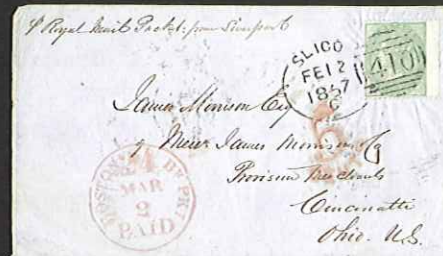 p Royal Mail Packet from Liverpool
SLIGO
FE 12
1857
C
410
James Morrison Esq
of Messrs James Morrison & Co
Provision Merchants
Cincinatti
Ohio. U.S.
BOSTON BR. PKT
MAR
2
PAID